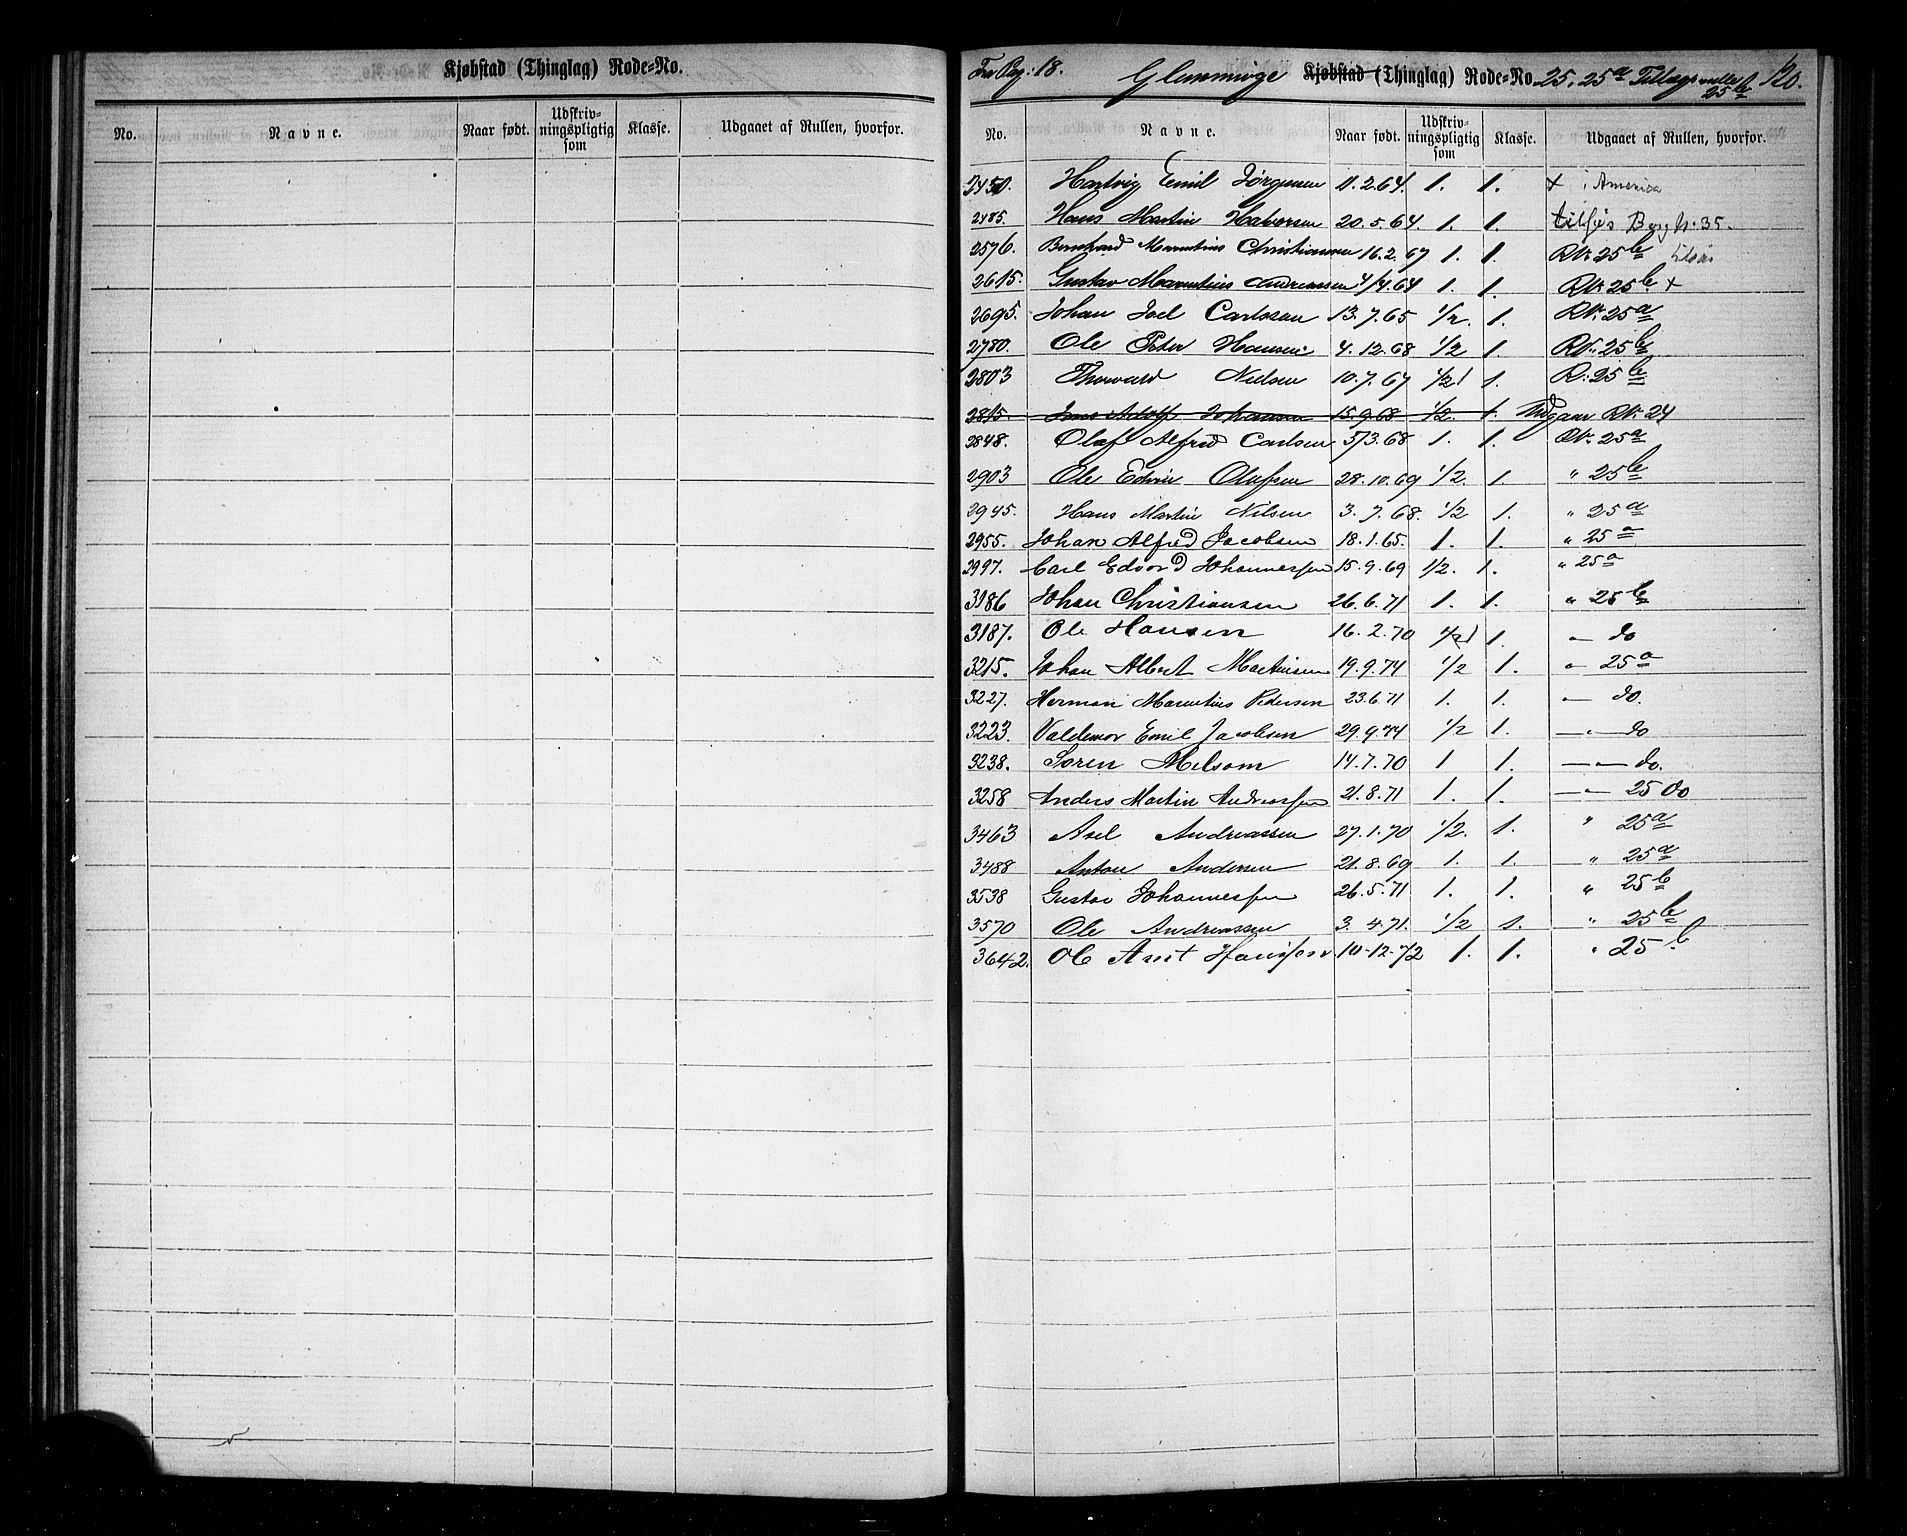 Kjøbstad (Thinglag) Rode-No.
No. Navne. Naar født. Udskriv-ningspligtig som Klasse. Udgaaet af Rullen, hvorfor.
Fra Pag: 18. Glemminge Kjøbstad (Thinglag) Rode-No. 25, 25a Tillægsruller 25b 120.
No. Navne. Naar født. Udskriv-ningspligtig som Klasse. Udgaaet af Rullen, hvorfor.
2450. Hartvig Emil Jörgensen 11.2.64. 1. 1. + i America
2485. Hans Martin Halvorsen 20.5.64. 1. 1. Borg N. 35.
2576. Bernhard Marentius Christiansen 16.2.67 1. 1. RN: 25b
2615. Gustav Marentius Andreassen 4/4.64 1. 1. RN: 25b +
2695. Johan Joel Carlsson 13.7.65 1/2. 1. RN: 25a
2780. Ole Peter Hansen 4.12.68 1/2 1. RN: 25b
2803 Thorvard Nielsen 10.7.67 1/2 1. R: 25b
2815. Jens Adolf Johansen 15.9.68 1/2. 1. Udgaar RN: 24
2848. Olaf Alfred Carlsen 5/3.68 1. 1. RN: 25a
2903 Ole Edvin Olufsen 28.10.69 1/2. 1. " 25b
2945. Hans Martin Nilsen 3.7.68. 1/2 1. " 25a
2955. Johan Alfred Jacobsen 18.1.65. 1. 1. " 25a
2997. Carl Edvard Johannessen 15.9.69 1/2. 1. " 25a
3186 Johan Christiansen 26.6.71 1. 1. " 25b
3187. Ole Hansen 16.2.70 1/2 1. " do
3215. Johan Albert Martinsen 19.9.74 1/2 1. " 25a
3227. Herman Marentius Pedersen 23.6.71 1. 1. " do.
3223. Valdemar Emil Jacobsen 29.9.74 1/2 1. " do
3238. Soren Melsom 14.7.70 1 1. " do.
3258 Anders Martin Andreassen 21.8.71 1. 1. " 25 do
3463 Axel Andreassen 27.1.70 1/2. 1. " 25a
3488 Anton Andersen 21.8.69 1. 1. " 25a
3538 Gustav Johannessen 26.5.71 1. 1. " 25b
3570 Ole Andreassen 3.4.71. 1/2 1. " 25b
3642. Ole Anst Hansson 10-12-72 1. 1. " 25b